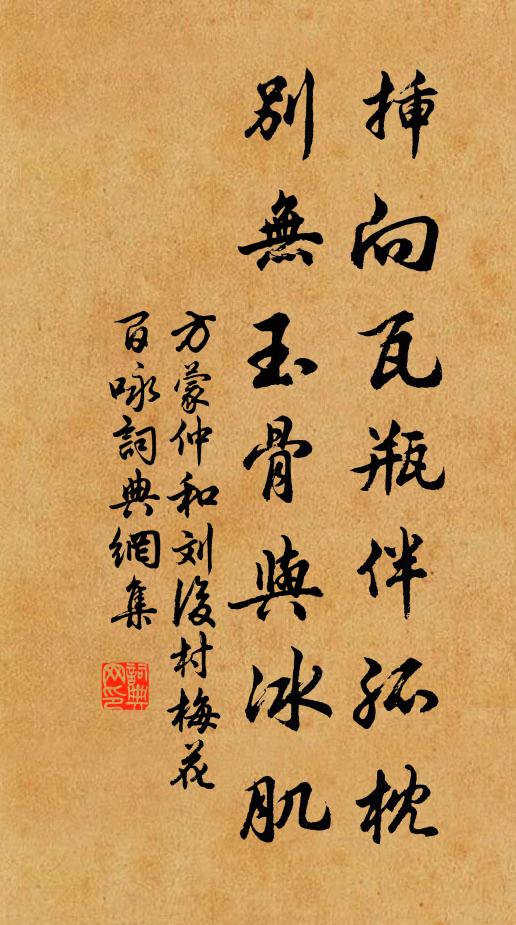 挿向瓦瓶伴孤枕
別無玉骨與冰肌
方蒙仲和刘後村梅花
百咏詞典網集
詞典网印